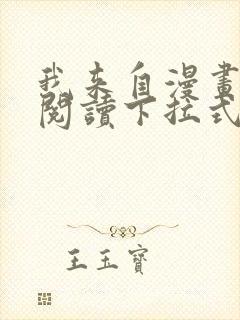 我来自漫畫
閱讀下拉式
王玉寶